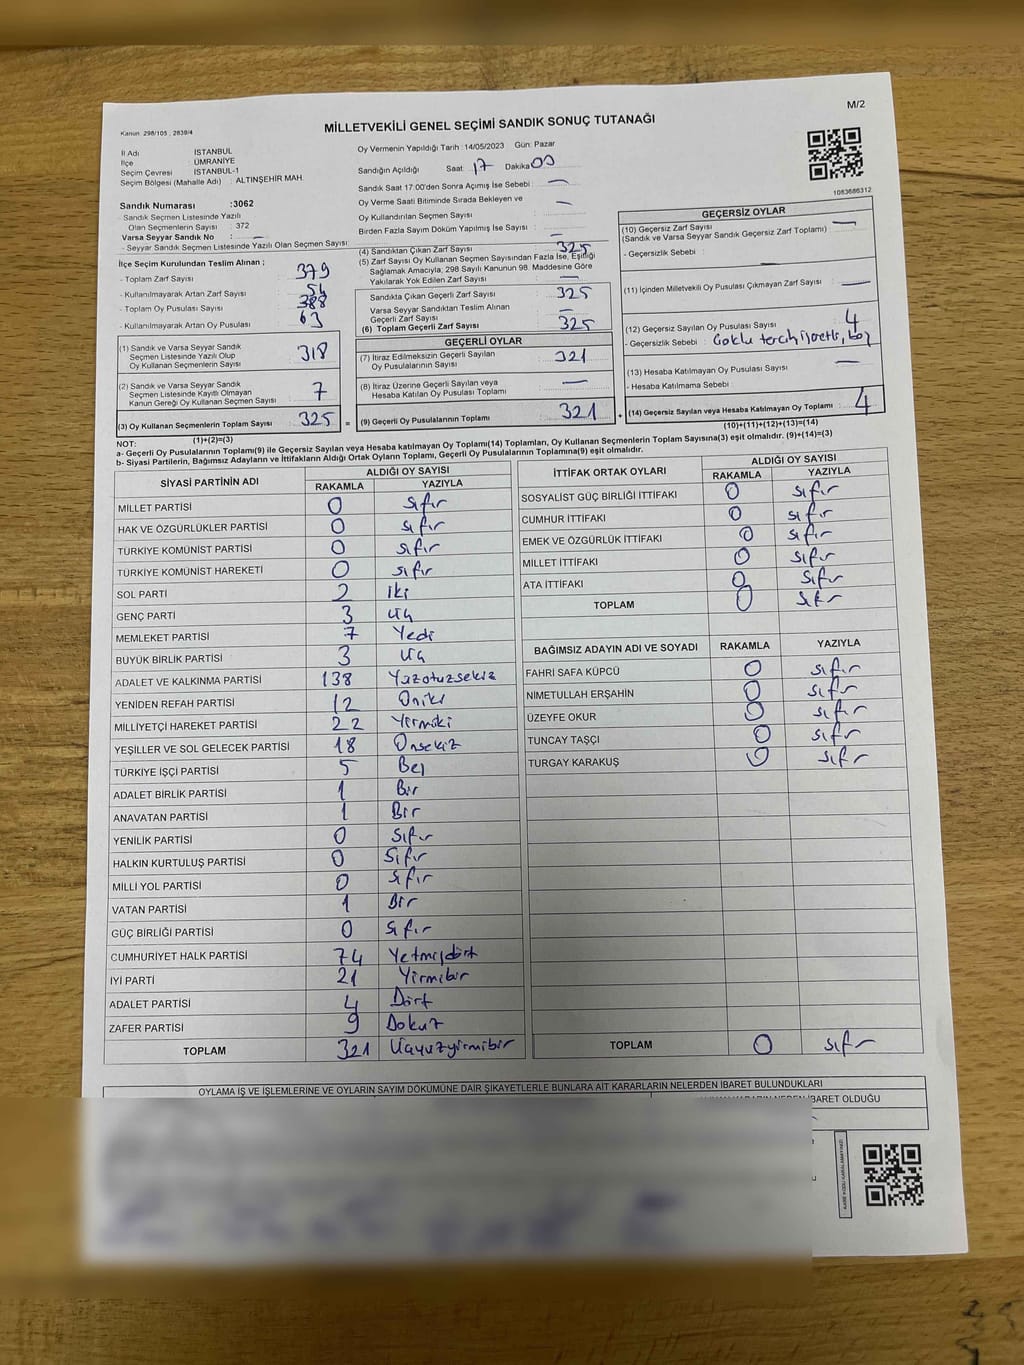 Kanun 298/105 , 2839/4
MİLLETVEKİLİ GENEL SEÇİMİ SANDIK SONUÇ TUTANAĞI
M/2
İl Adı İSTANBUL
İlçe ÜMRANİYE
Seçim Çevresi İSTANBUL-1
Seçim Bölgesi (Mahalle Adı) : ALTINŞEHİR MAH.
Sandık Numarası :3062
- Sandık Seçmen Listesinde Yazılı
Olan Seçmenlerin Sayısı 372
Varsa Seyyar Sandık No : —
- Seyyar Sandık Seçmen Listesinde Yazılı Olan Seçmen Sayısı:
Oy Vermenin Yapıldığı Tarih :14/05/2023 Gün: Pazar
Sandığın Açıldığı Saat: 17 Dakika 00
Sandık Saat 17:00'den Sonra Açımış İse Sebebi : —
Oy Verme Saati Bitiminde Sırada Bekleyen ve
Oy Kullandırılan Seçmen Sayısı : —
Birden Fazla Sayım Döküm Yapılmış İse Sayısı : —
1083686312
İlçe Seçim Kurulundan Teslim Alınan ;
- Toplam Zarf Sayısı : 379
- Kullanılmayarak Artan Zarf Sayısı : 54
- Toplam Oy Pusulası Sayısı : 388
- Kullanılmayarak Artan Oy Pusulası : 63
(1) Sandık ve Varsa Seyyar Sandık
Seçmen Listesinde Yazılı Olup
Oy Kullanan Seçmenlerin Sayısı : 318
(2) Sandık ve Varsa Seyyar Sandık
Seçmen Listesinde Kayıtlı Olmayan
Kanun Gereği Oy Kullanan Seçmen Sayısı : 7
(3) Oy Kullanan Seçmenlerin Toplam Sayısı : 325
(1)+(2)=(3)
(4) Sandıktan Çıkan Zarf Sayısı : 325
(5) Zarf Sayısı Oy Kullanan Seçmen Sayısından Fazla İse, Eşitliği
Sağlamak Amacıyla; 298 Sayılı Kanunun 98. Maddesine Göre
Yakılarak Yok Edilen Zarf Sayısı : —
Sandıkta Çıkan Geçerli Zarf Sayısı : 325
Varsa Seyyar Sandıktan Teslim Alınan
Geçerli Zarf Sayısı : —
(6) Toplam Geçerli Zarf Sayısı : 325
GEÇERLİ OYLAR
(7) İtiraz Edilmeksizin Geçerli Sayılan
Oy Pusulalarının Sayısı : 321
(8) İtiraz Üzerine Geçerli Sayılan veya
Hesaba Katılan Oy Pusulası Toplamı : —
= (9) Geçerli Oy Pusulalarının Toplamı : 321
GEÇERSİZ OYLAR
(10) Geçersiz Zarf Sayısı : —
(Sandık ve Varsa Seyyar Sandık Geçersiz Zarf Toplamı)
- Geçersizlik Sebebi : —
(11) İçinden Milletvekili Oy Pusulası Çıkmayan Zarf Sayısı : —
(12) Geçersiz Sayılan Oy Pusulası Sayısı : 4
- Geçersizlik Sebebi : Çoklu tercih işaretli, boş
(13) Hesaba Katılmayan Oy Pusulası Sayısı : —
- Hesaba Katılmama Sebebi :
+ (14) Geçersiz Sayılan veya Hesaba Katılmayan Oy Toplamı : 4
(10)+(11)+(12)+(13)=(14)
NOT:
a- Geçerli Oy Pusulasının Toplamı(9) ile Geçersiz Sayılan veya Hesaba katılmayan Oy Toplamı(14) Toplamları, Oy Kullanan Seçmenlerin Toplam Sayısına(3) eşit olmalıdır. (9)+(14)=(3)
b- Siyasi Partilerin, Bağımsız Adayların ve İttifakların Aldığı Ortak Oyların Toplamı, Geçerli Oy Pusulalarının Toplamına(9) eşit olmalıdır.
SİYASİ PARTİNİN ADI ALDIĞI OY SAYISI
RAKAMLA YAZIYLA
MİLLET PARTİSİ 0 sıfır
HAK VE ÖZGÜRLÜKLER PARTİSİ 0 sıfır
TÜRKİYE KOMÜNİST PARTİSİ 0 sıfır
TÜRKİYE KOMÜNİST HAREKETİ 0 sıfır
SOL PARTİ 2 iki
GENÇ PARTİ 3 üç
MEMLEKET PARTİSİ 7 Yedi
BÜYÜK BİRLİK PARTİSİ 3 üç
ADALET VE KALKINMA PARTİSİ 138 Yüzotuzsekiz
YENİDEN REFAH PARTİSİ 12 Oniki
MİLLİYETÇİ HAREKET PARTİSİ 22 Yirmiki
YEŞİLLER VE SOL GELECEK PARTİSİ 18 Onsekiz
TÜRKİYE İŞÇİ PARTİSİ 5 Beş
ADALET BİRLİK PARTİSİ 1 Bir
ANAVATAN PARTİSİ 1 Bir
YENİLİK PARTİSİ 0 Sıfır
HALKIN KURTULUŞ PARTİSİ 0 Sıfır
MİLLİ YOL PARTİSİ 0 sıfır
VATAN PARTİSİ 1 Bir
GÜÇ BİRLİĞİ PARTİSİ 0 Sıfır
CUMHURİYET HALK PARTİSİ 74 Yetmişdört
İYİ PARTİ 21 Yirmibir
ADALET PARTİSİ 4 Dört
ZAFER PARTİSİ 9 Dokuz
TOPLAM 321 Üçyüzyirmibir
İTTİFAK ORTAK OYLARI ALDIĞI OY SAYISI
RAKAMLA YAZIYLA
SOSYALİST GÜÇ BİRLİĞİ İTTİFAKI 0 sıfır
CUMHUR İTTİFAKI 0 sıfır
EMEK VE ÖZGÜRLÜK İTTİFAKI 0 sıfır
MİLLET İTTİFAKI 0 sıfır
ATA İTTİFAKI 0 sıfır
TOPLAM 0 sıfır
BAĞIMSIZ ADAYIN ADI VE SOYADI RAKAMLA YAZIYLA
FAHRİ SAFA KÜPCÜ 0 sıfır
NİMETULLAH ERŞAHİN 0 sıfır
ÜZEYFE OKUR 0 sıfır
TUNCAY TAŞÇI 0 sıfır
TURGAY KARAKUŞ 0 sıfır
TOPLAM 0 sıfır
OYLAMA İŞ VE İŞLEMLERİNE VE OYLARIN SAYIM DÖKÜMÜNE DAİR ŞİKAYETLERLE BUNLARA AİT KARARLARIN NELERDEN İBARET BULUNDUKLARI
İBARET OLDUĞU